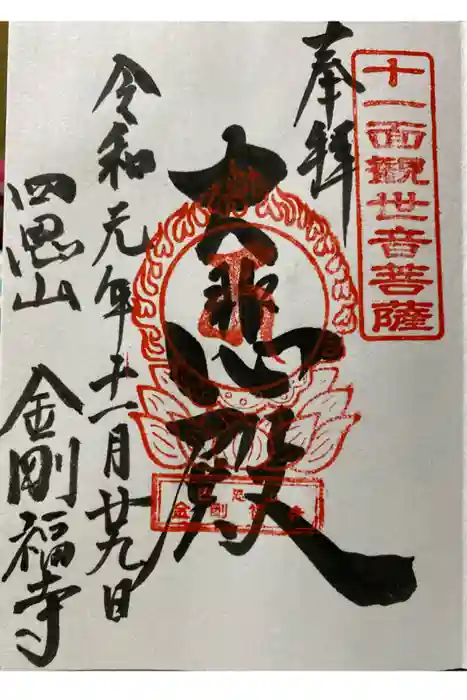 十一面觀世音菩薩
奉拝
大悲心殿
令和元年十一月廿九日
四恩山 金剛福寺